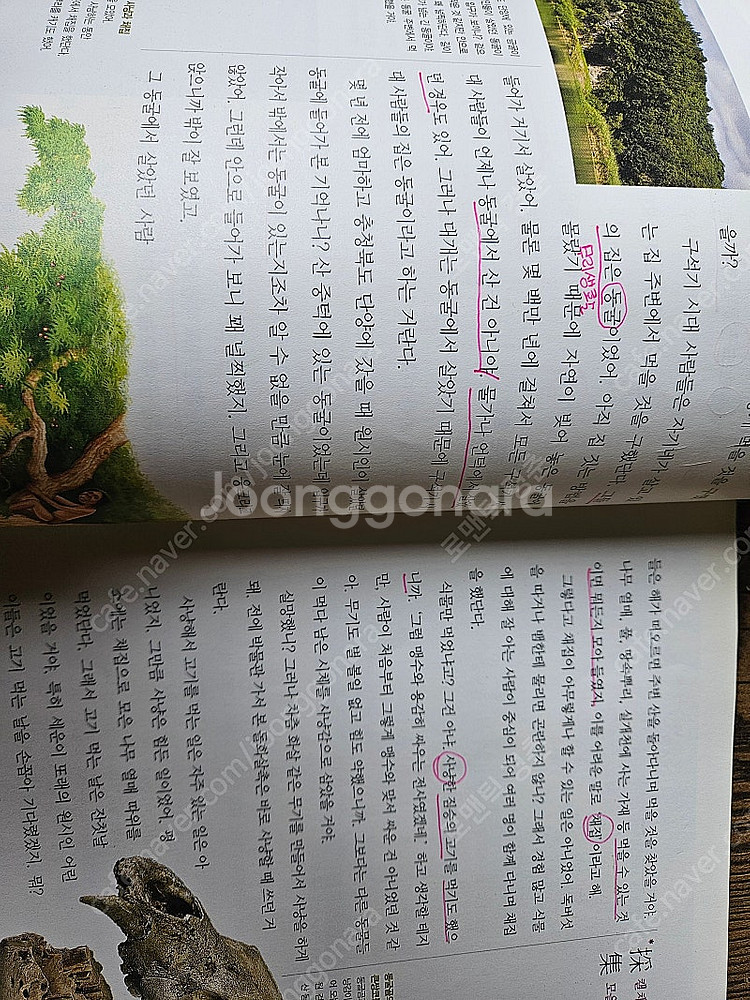 을까?
구석기 시대 사람들은 자기네가 살고
는 집 주변에서 먹을 것을 구했단다.
의 집은 동굴이었어. 아직 집 짓는 방법을
몰랐기 때문에 자연이 빚어 놓은
들어가 거기서 살았어. 물론 몇 백만 년에 걸쳐서 모든
대 사람들이 언제나 동굴에서 산 건 아니야. 물가나 언덕에서
던 경우도 있어. 그러나 대개는 동굴에서 살았기 때문에
대 사람들의 집은 동굴이라고 하는 거란다.
몇 년 전에 엄마하고 충청북도 단양에 갔을 때 원시인이
동굴에 들어가 본 기억나니? 산 중턱에 있는 동굴이었는데
작아서 밖에서는 동굴이 있는지조차 알 수 없을 만큼 눈에
않았어. 그런데 안으로 들어가 보니 꽤 널찍했지. 그리고
앉으니까 밖이 잘 보였고.
그 동굴에서 살았던 사람
들은 해가 떠오르면 주변 산을 돌아다니며 먹을 것을 찾았을 거야.
나무 열매, 풀, 땅속뿌리, 실개천에 사는 가재 등 먹을 수 있는 것
이면 뭐든지 모아 들였지. 이를 어려운 말로 '채집'이라고 해.
그렇다고 채집이 아무렇게나 할 수 있는 일은 아니었어. 독버섯
을 따거나 뱀한테 물리면 곤란하지 않니? 그래서 경험 많고 식물
에 대해 잘 아는 사람이 중심이 되어 여러 명이 함께 다니며 채집
을 했단다.
식물만 먹었냐고? 그건 아냐. 사냥한 짐승의 고기를 먹기도 했으
니까. '그럼 맹수와 용감히 싸우는 전사였겠네.' 하고 생각할 테지
만, 사람이 처음부터 그렇게 맹수와 맞서 싸운 건 아니었던 것 같
아. 무기도 별 볼일 없고 힘도 약했으니까. 그보다는 다른 동물들
이 먹다 남은 시체를 사냥감으로 삼았을 거야.
실망했니? 그러나 차츰 화살 같은 무기를 만들어서 사냥을 하게
돼. 전에 박물관 가서 본 돌화살촉은 바로 사냥할 때 쓰던 거
란다.
사냥해서 고기를 먹는 일은 자주 있는 일은 아
니었지. 그만큼 사냥은 힘든 일이었어. 평
소에는 채집으로 모은 나무 열매 따위를
먹었단다. 그래서 고기 먹는 날은 잔칫날
이었을 거야. 특히 세운이 또래의 원시인 어린
이들은 고기 먹는 날을 손꼽아 기다렸겠지. 뭐?
採
集
Joonggonara
cafe.naver.com/joonggonara